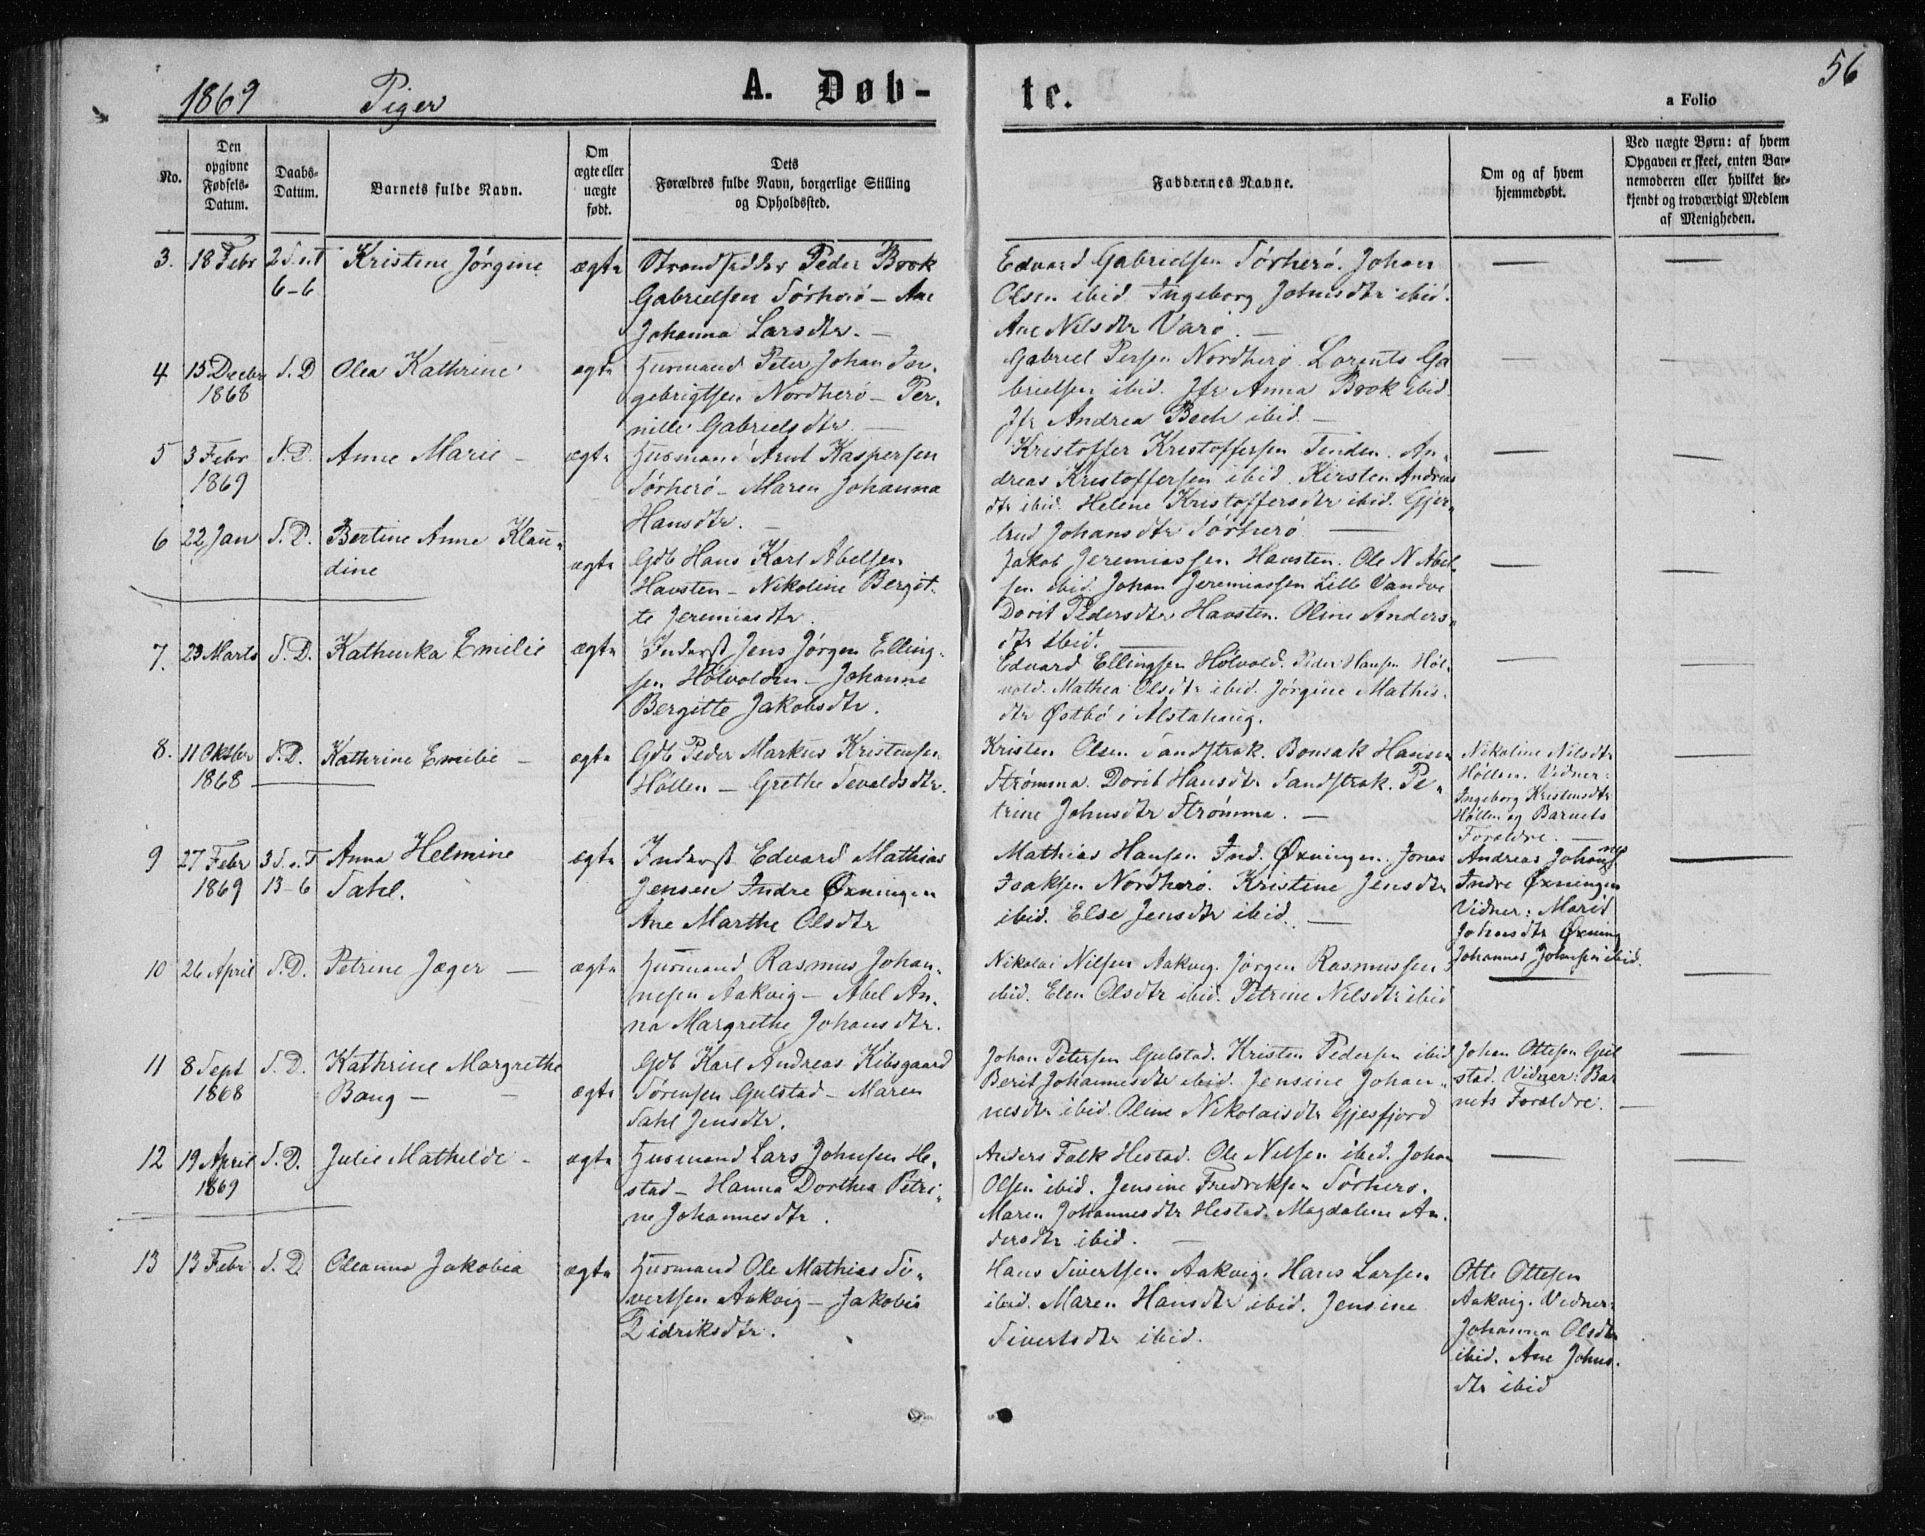 1869 Piger A. Døb-
te. a Folio 56
No.
Den opgivne Fødsels-Datum.
Daabs-Datum.
Barnets fulde Navn.
Om ægte eller uægte født.
Dets Forældres fulde Navn, borgerlige Stilling og Opholdssted.
Faddernes Navne.
Om og af hvem hjemmedøbt.
Ved uægte Børn: af hvem Opgaven er skeet, enten Barnemoderen eller hvilket bekjendt og troværdigt Medlem af Menigheden.
3. 18 Febr 2 S.e.T 6-6 Kristine Jørgine ægte
Strandsidder Peder Book
Gabrielsen Sørherø - Ane
Johanna Larsdtr. -
Edvard Gabrielsen Sørherø. Johan
Olsen ibid. Ingeborg Johnsdtr ibid.
Ane Nilsdtr Varø. -
4 15 Decbr 1868 S.D Olea Kathrine ægte
Husmand Peter Johan In-
gebrigtsen Nordherø - Per-
nille Gabrielsdtr. -
Gabriel Persen Nordherø. Lorents Ga-
brielsen ibid. Jfr Anna Book ibid
Jfr Andrea Bech ibid. -
5 3 Febr 1869 S.D. Anne Marie - ægte
Husmand Arnt Kaspersen
Sørherø - Maren Johanna
Hansdtr. -
Kristoffer Kristoffersen Tenden. An-
dreas Kristoffersen ibid. Kirsten Andreas
dtr ibid. Helene Kristoffersdtr ibid. Gjer-
trud Johansdtr Sørherø -
6 22 Jan S.D. Bertine Anne Klau-
dine ægte
Gdb Hans Karl Abelsen
Havsten - Nikoline Bergit-
te Jeremiasdtr.
Jakob Jeremiassen Havsten. Ole N Abel-
sen ibid. Johan Jeremiassen Lille Vandve
Dorit Pedersdtr Havsten. Oline Anders-
dtr ibid. -
7. 29 Marts S.D. Kathinka Emilie ægte
Inderst Jens Jørgen Elling-
sen Hølvolden - Johanne
Bergitte Jakobsdtr.
Edvard Ellingsen Hølvold. Peder Hansen Høl-
vold. Mathea Olsdtr ibid. Jørgine Mathis-
dtr Østbø i Alstahaug.
8. 11 Oktbr 1868 S.D. Kathrine Emilie - ægte
Gdb Peder Markus Kristensen
Høllen - Grethe Sevaldsdtr.
Kristen Olsen Sandstrak. Bonsak Hansen
Strømma. Dorit Hansdtr Sandstrak. Pe-
trine Johnsdtr Strømma. -
Nikoline Nilsdtr
Høllen. Vidner:
Ingeborg Kristensdtr
Høllen og Barnets
Forældre. -
9 27 Febr 1869 3 S.e.T 13-6 Anna Helmine
Dahl. ægte
Inderst Edvard Mathias
Jensen Indre Øxningen
Ane Marthe Olsdtr
Mathias Hansen Ind. Øxningen. Jonas
Isaksen Nordherø. Kristine Jensdtr
ibid. Else Jensdtr ibid. -
Andreas Johans
Indre Øxningen
Vidner: Marit
Johnsdtr Øxning
Johannes Johnsen ibid.
10 26 April S.D. Petrine Jæger - ægte
Husmand Rasmus Johan-
nesen Aakvig - Abel An-
na Margrethe Johansdtr.
Nikolai Nilsen Aakvig. Jørgen Rasmussen
ibid. Elen Olsdtr ibid. Petrine Nilsdtr ibid
11 8 Sept 1868 S.D. Kathrine Margrethe
Bang - - ægte
Gdb Karl Andreas Kibsgaard
Sørensen Gulstad - Maren
Dahl Jensdtr.
Johan Petersen Gulstad. Kristen Pedersen ibid
Berit Johannesdtr ibid. Jensine Johan-
nesdtr ibid. Oline Nikolaisdtr Gjesfjord
Johan Ottesen Gul-
stad. Vidner: Bar
nets Forældre.
12 19 April 1869 S.D. Julie Mathilde - ægte
Husmand Lars Johnsen He-
stad - Hanna Dorthea Petri-
ne Johannesdtr.
Anders Falk Hestad. Ole Nilsen ibid. Johan
Olsen ibid. Jensine Fredriksen Sørherø.
Maren Johannesdtr Hestad. Magdalene An-
dersdtr ibid. -
13 13 Febr S.D. Oleanna Jakobia ægte
Husmand Ole Mathias Si-
vertsen Aakvig - Jakobia
Didriksdtr.
Hans Sivertsen Aakvig. Hans Larsen
ibid. Maren Hansdtr ibid. Jensine
Sivertsdtr ibid.
Otte Ottesen
Aakvig. Vidner:
Johanna Olsdtr
ibid. Ane Johns-
dtr ibid